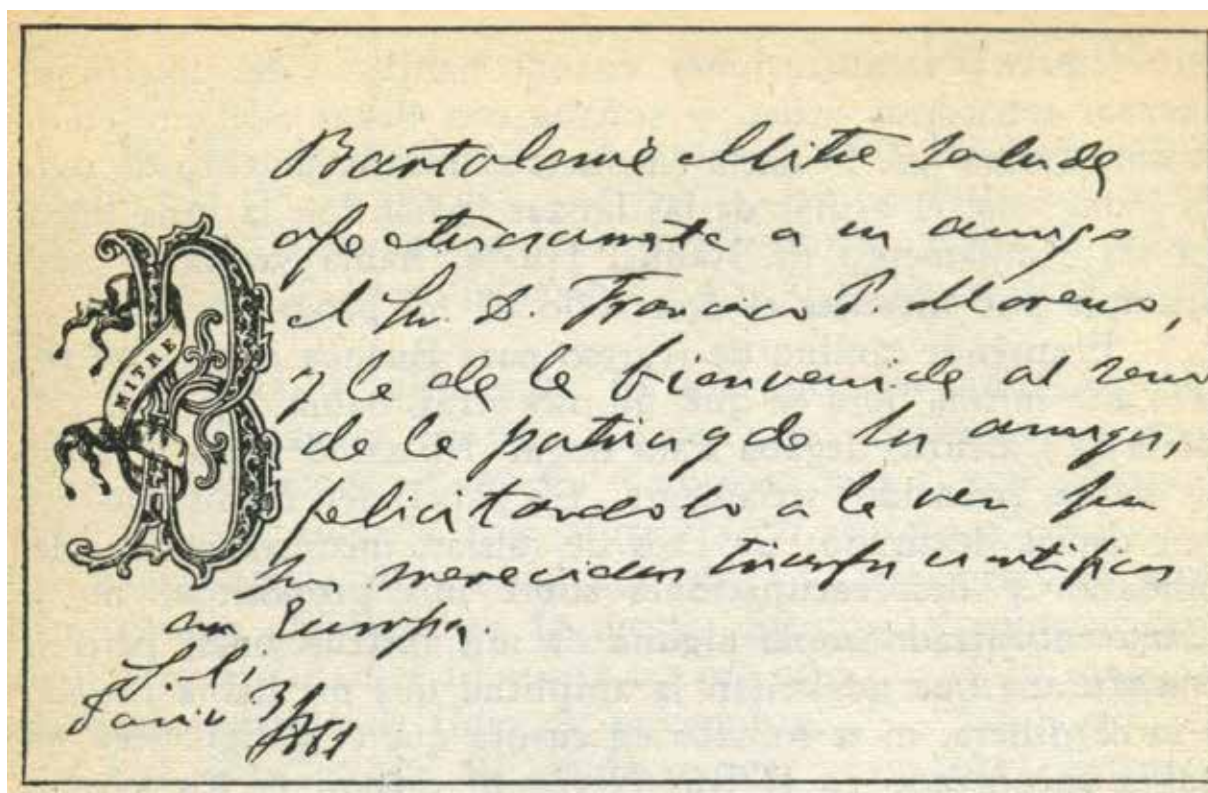 Bartolomé Mitre saluda
afectuosamente a su amigo
el Sr. D. Francisco P. Moreno,
y le da la bienvenida al seno
de la patria y de sus amigos,
felicitandolo a la vez por
sus merecidos triunfos cientificos
en Europa.
MITRE
S. C.
Junio 3/1881